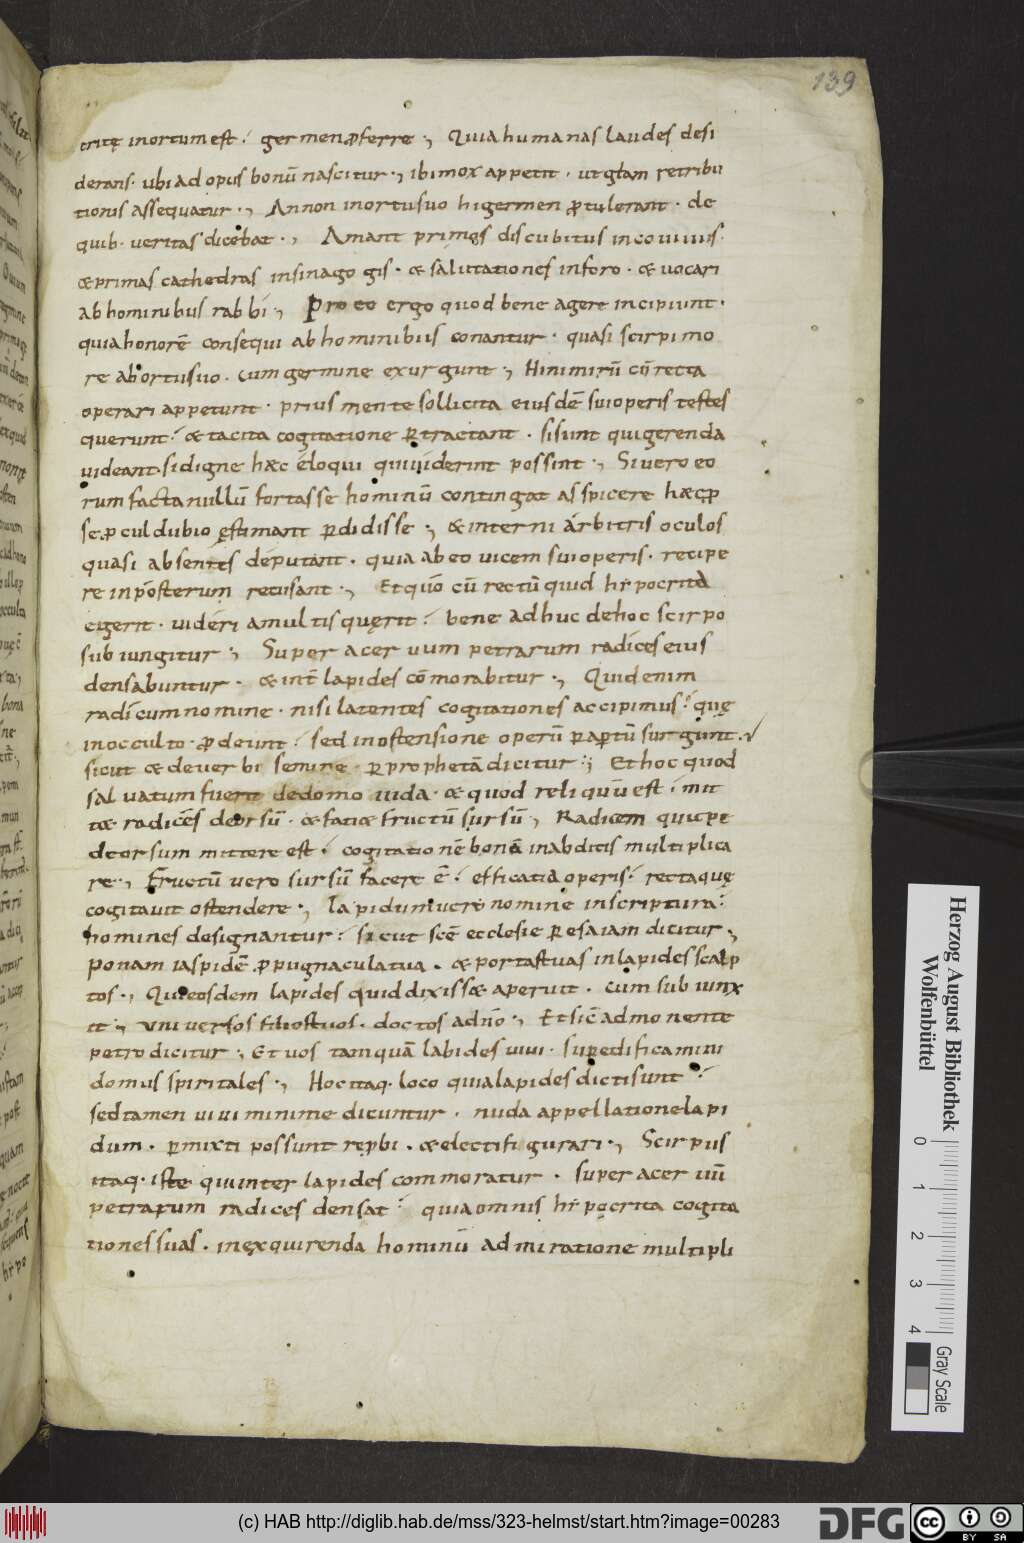 139
critę inortum est germen ꝓferre Quia humanas laudes desi
derans. ubi ad opus bonū nascitur. ibi mox appetit. ut głam retribu
tionis assequatur. An non inortu suo hi germen ꝓtulerant. de
quib. veritas dicebat. Amant primos discubitus in coviviis.
& primas cathedras insinagogis. & salutationes inforo. & vocari
ab hominibus rabbi. Pro eo ergo quod bene agere incipiunt.
quia honorē consequi ab hominibus conantur. quasi scirpi mo
re ab ortu suo. cum germine exurgunt. Hi nimirū cū recta
operari appetunt. prius mente sollicita eiusdē sui operis testes
querunt. & tacita cogitatione ꝑtractant. si sunt qui gerenda
videant. si digne haec eloqui qui viderint possint. Si vero eo
rum facta nullū fortasse hominū contingat asspicere haec ꝓ
se ꝓculdubio ęstimant ꝑdidisse. & interni arbitris oculos
quasi absentes deputant. quia ab eo vicem sui operis. recipe
re inpósterum recusant. Et quō cū rectū quid hipocrita
eigerit. videri a multis quęrit. bene adhuc de hoc scirpo
subiungitur. Super acervum petrarum radices eius
densabuntur. & inť lapides cōmorabitur. Quid enim
radicum nomine. nisi latentes cogitationes accipimus. quę
in occulto ꝓdeunt. sed in ostensione operū ꝑ aptū surgunt.
sicut & de verbi semine. ꝑ prophetā dicitur. Et hoc quod
salvatum fuerit de domo iuda. & quod reliquū est. mit
tae radices deorsū. & fatiae fructū sursū. Radicem quippe
deorsum mittere est. cogitationē bonā in abditis multiplica
re. Fructū vero sursū facere ē. efficatia operis. recta quę
cogitavit ostendere. lapidum vero nomine in scriptura
homines designantur. sicut scē ecclesie ꝑ esaiam dicitur.
Ponam iaspidē ꝓpugnacula tua. & portas tuas in lapides scalp
tos. Qui eosdem lapides quid dixissae aperuit. cum subiunx
it. universos filios tuos. doctos ad nō. Et sic admonente
petro dicitur. Et vos tamquā labides vivi. supedificamini
domus spiritales. Hoc itaq. loco quia lapides dicti sunt
sed tamen vivi minime dicuntur. nuda appellatione lapi
dum. ꝑmixti possunt repbi. & electi figurari. Scirpus
itaq. iste qui inter lapides commoratur. super acervū
petrarum radices densat. quia omnis hipocrita cogita
tiones suas. in exquirenda hominū admiratione multipli
Herzog August Bibliothek
Wolfenbüttel
0 1 2 3 4
Gray Scale
(c) HAB http://diglib.hab.de/mss/323-helmst/start.htm?image=00283
DFG
cc BY SA